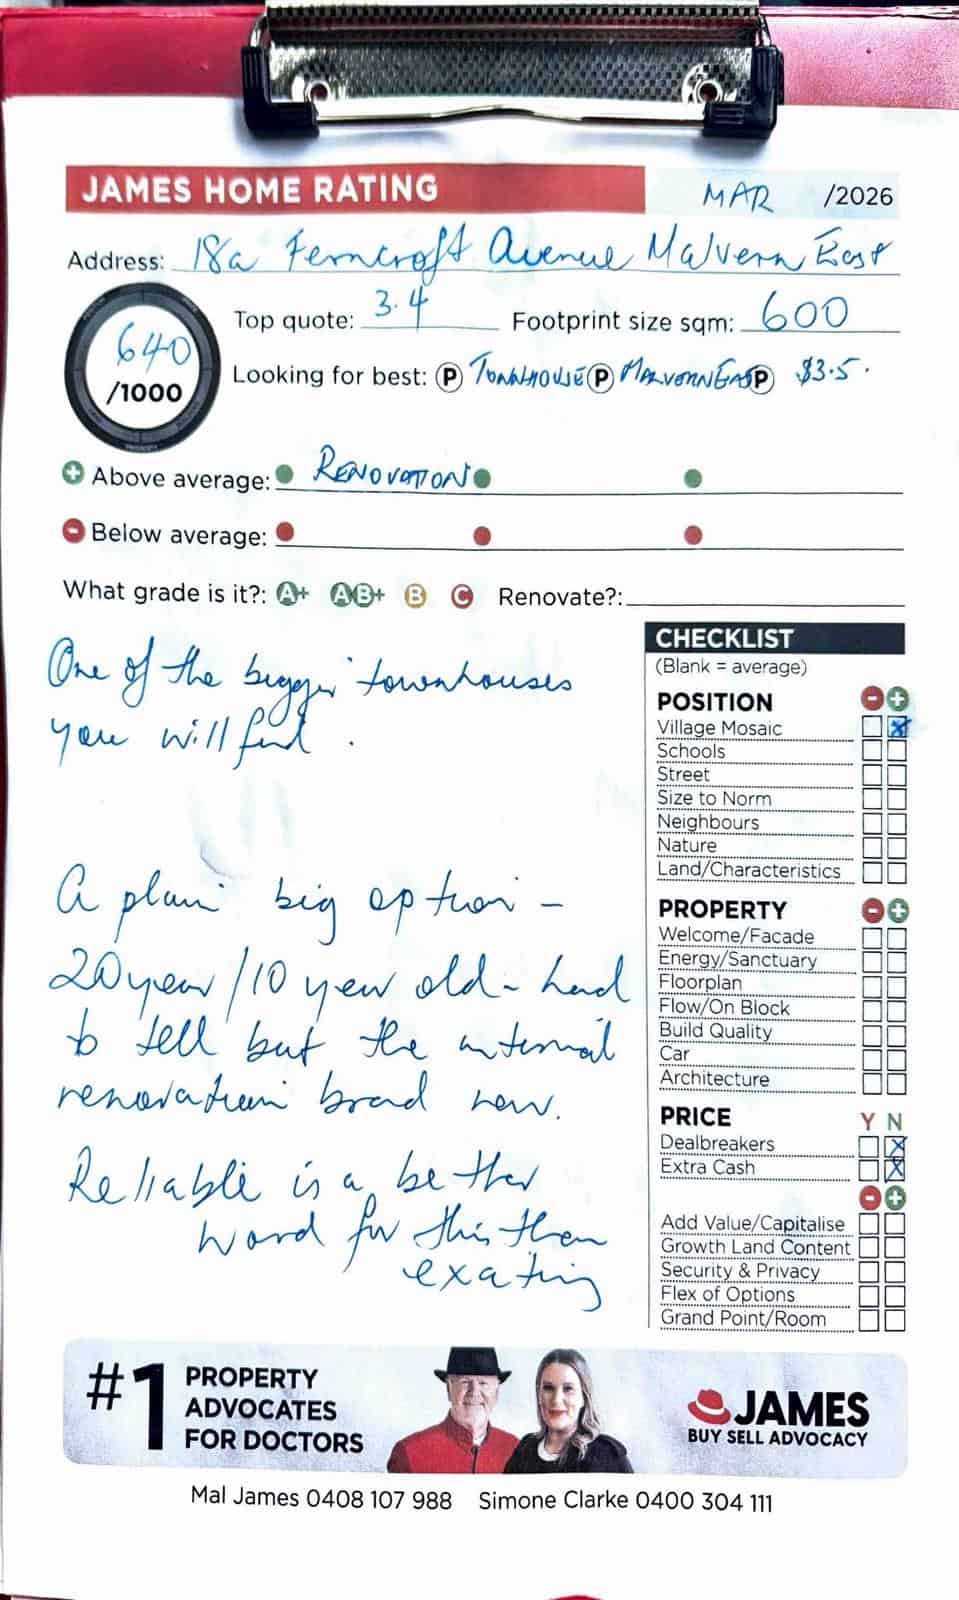 JAMES HOME RATING MAR /2026
Address: 18a Ferncroft Avenue Malvern East
640 /1000
Top quote: 3.4 Footprint size sqm: 600
Looking for best: P TOWNHOUSE P MALVERN EAST P $3.5.
+ Above average: RENOVATION
- Below average:
What grade is it?: A+ AB+ B C Renovate?:
One of the bigger townhouses
you will find.
A plain big option -
20 year/10 year old - hard
to tell but the internal
renovation brand new.
Reliable is a better
word for this than
exciting
CHECKLIST
(Blank = average)
POSITION - +
Village Mosaic X
Schools
Street
Size to Norm
Neighbours
Nature
Land/Characteristics
PROPERTY - +
Welcome/Facade
Energy/Sanctuary
Floorplan
Flow/On Block
Build Quality
Car
Architecture
PRICE Y N
Dealbreakers X
Extra Cash X
- +
Add Value/Capitalise
Growth Land Content
Security & Privacy
Flex of Options
Grand Point/Room
#1 PROPERTY
ADVOCATES
FOR DOCTORS
JAMES
BUY SELL ADVOCACY
Mal James 0408 107 988 Simone Clarke 0400 304 111